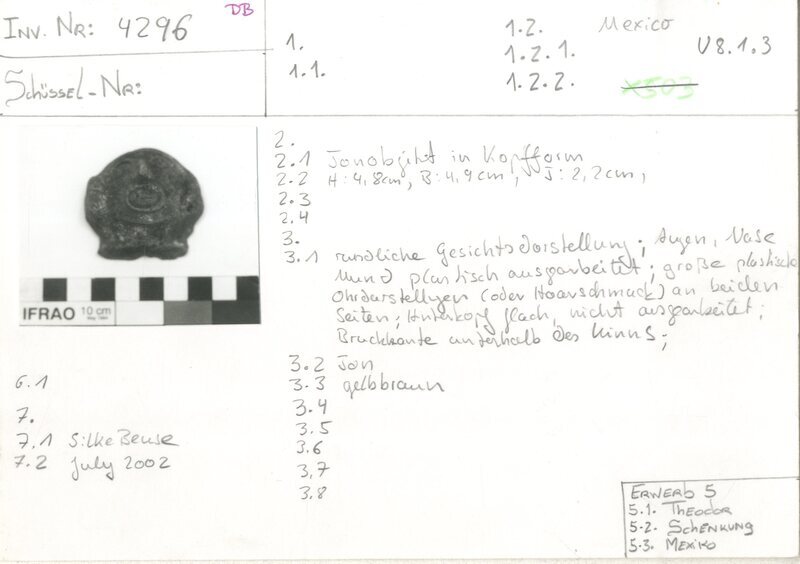 INV. NR: 4296
DB
SCHÜSSEL-NR:
1.
1.1.
1.2. Mexico
1.2.1.
1.2.2.
V8.1.3
X503
2.
2.1 Tonobjekt in Kopfform
2.2 H: 4,8cm, B: 4,9cm, T: 2,2cm,
2.3
2.4
3.
3.1 rundliche Gesichtsdarstellung; Augen, Nase
Mund plastisch ausgearbeitet; große plastische
Ohrdarstellungen (oder Haarschmuck) an beiden
Seiten; Hinterkopf flach, nicht ausgearbeitet;
Bruchkante unterhalb des Kinns;
3.2 Ton
3.3 gelbbraun
3.4
3.5
3.6
3,7
3.8
IFRAO 10 cm
6.1
7.
7.1 Silke Beuse
7.2 July 2002
ERWERB 5
5.1. THEODOR
5.2. SCHENKUNG
5.3. MEXIKO